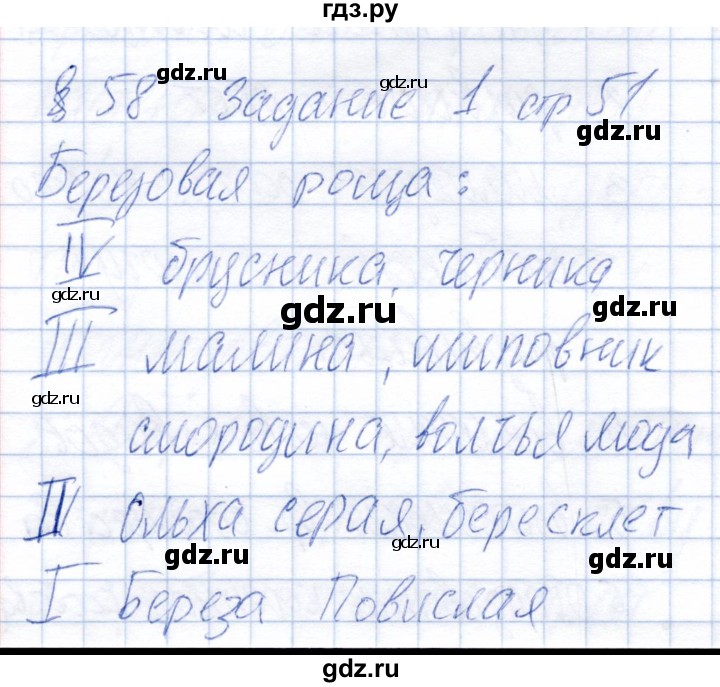 гдз.ру
§ 58 Задание 1 стр 51
gdz.ru
gdz.ru
gdz.ru
Березовая роща:
IV брусника, черника
gdz.ru
gdz.ru
gdz.ru
III малина, шиповник
gdz.ru
смородина, волчья мода
II Ольха серая, бересклет
gdz.ru
gdz.ru
gdz.ru
I Береза Повислая
gdz.ru